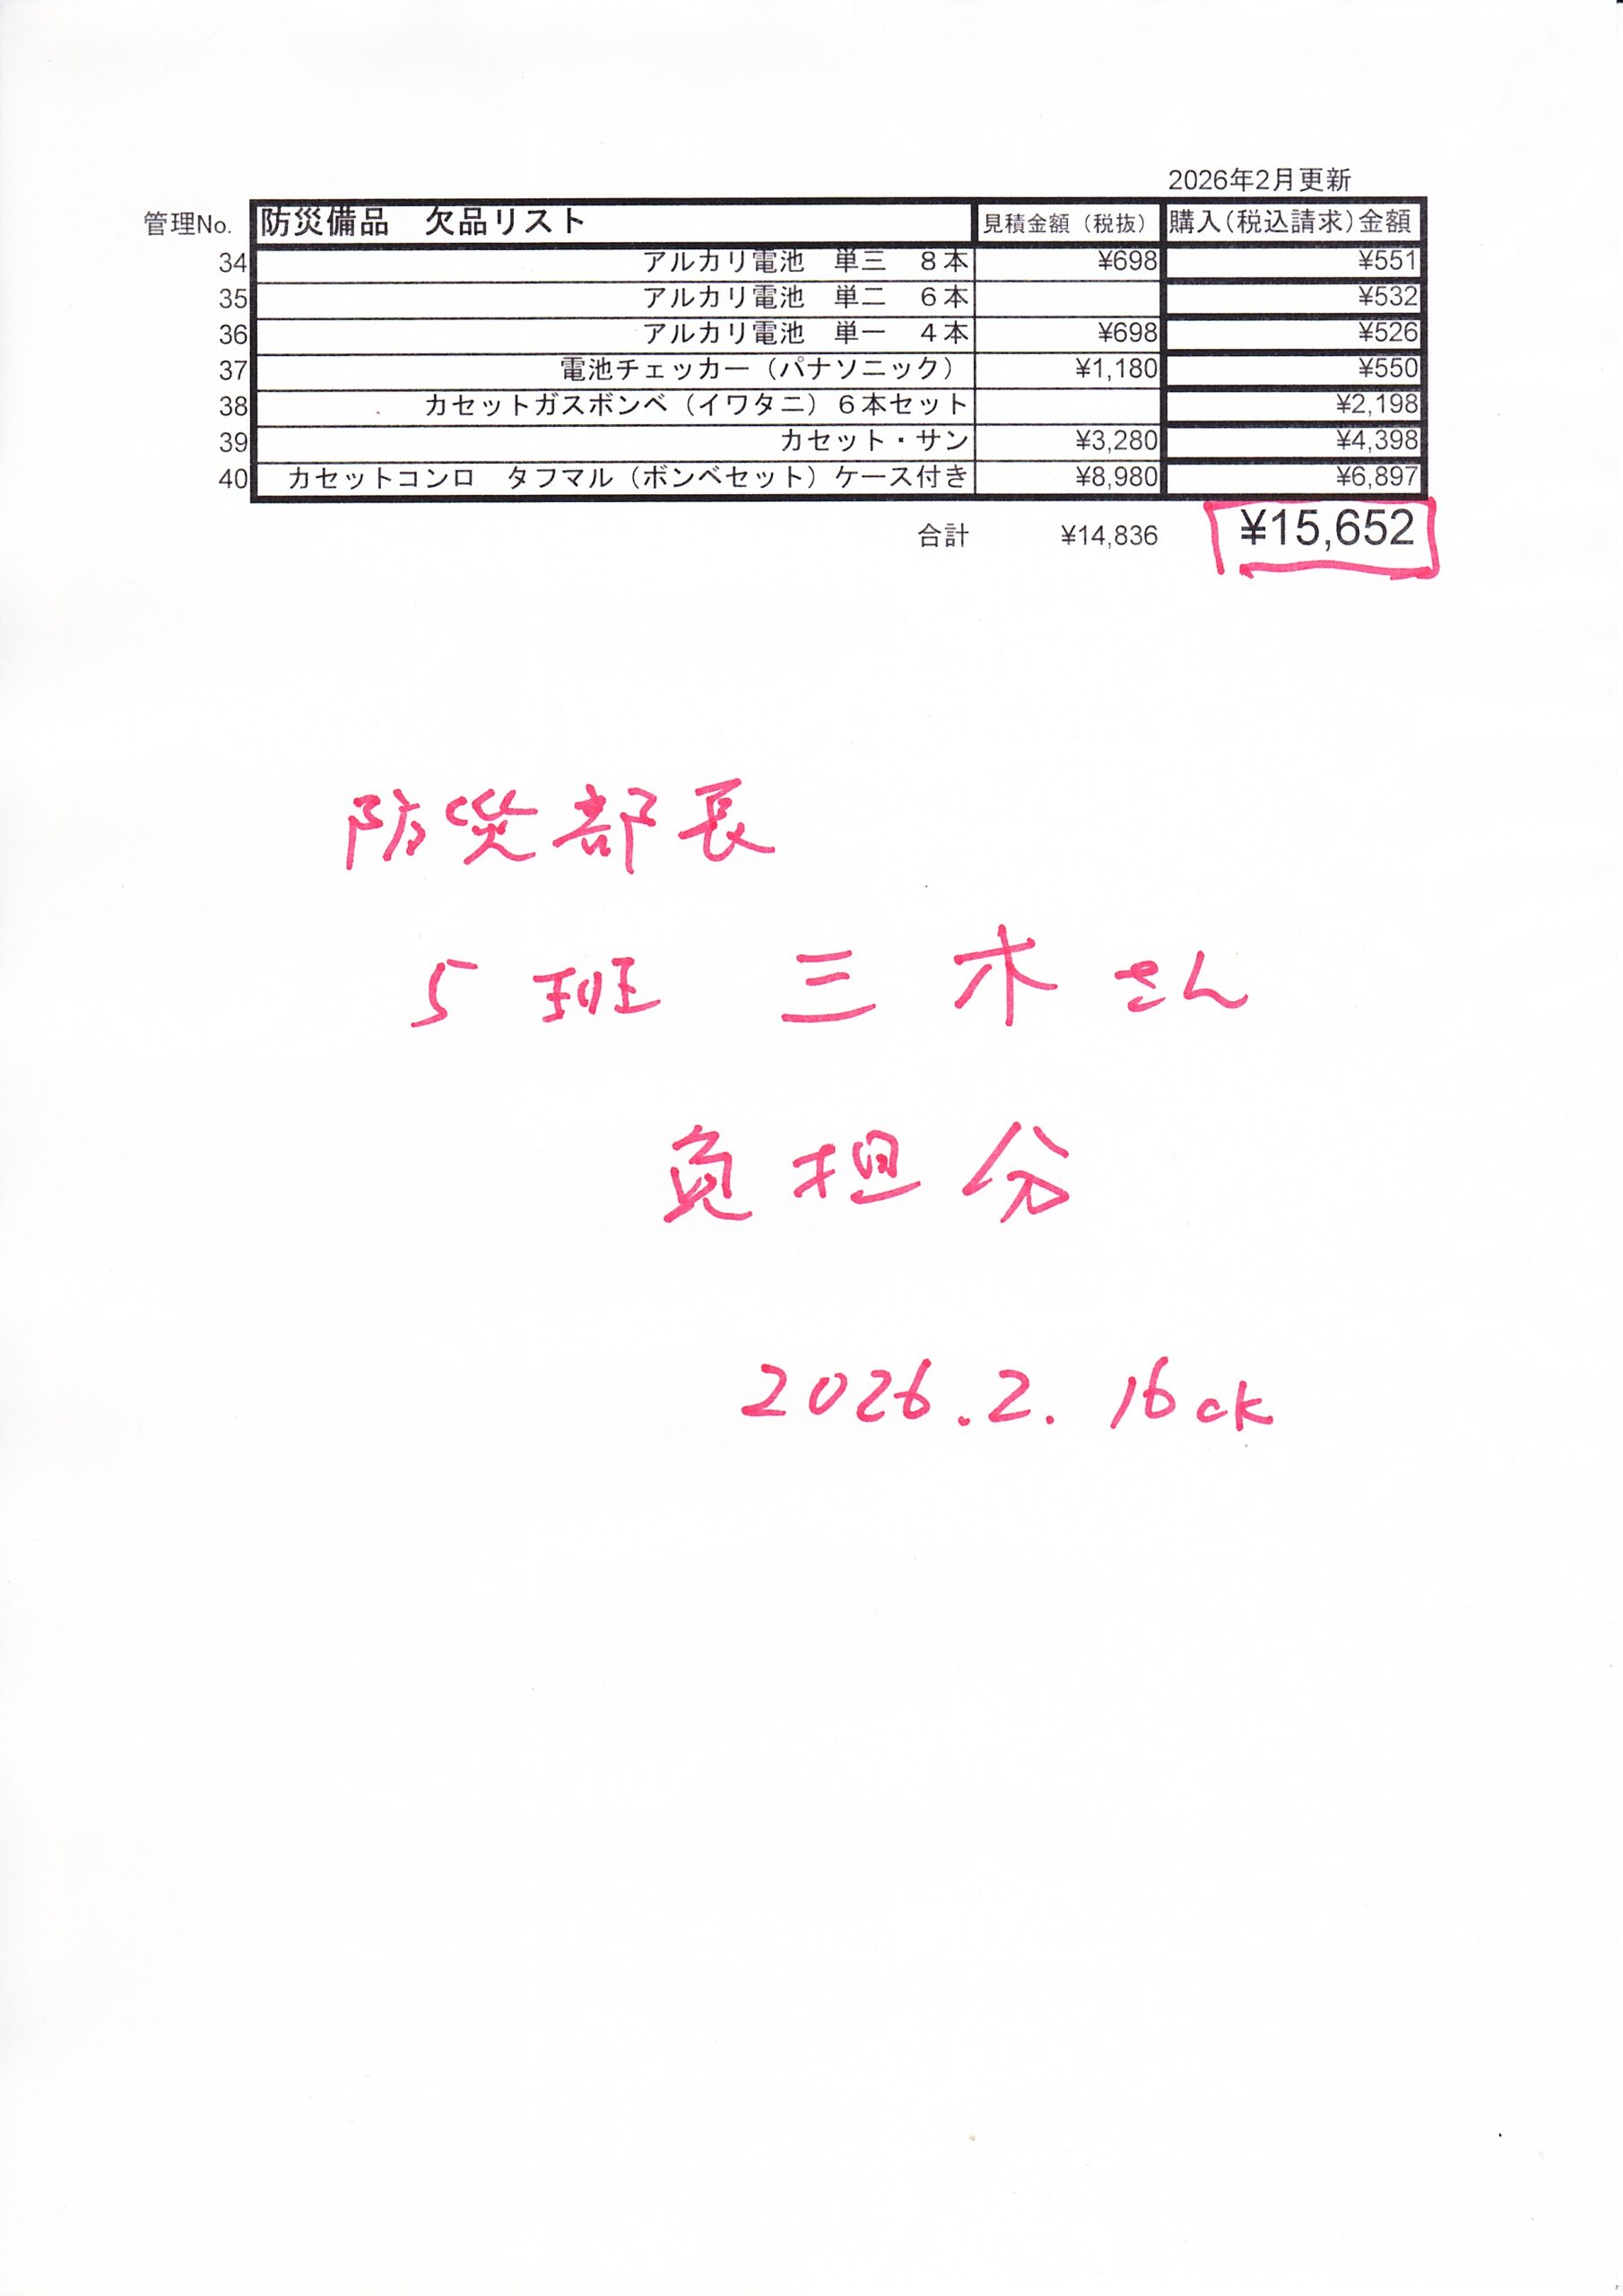 2026年2月更新
管理No. 防災備品 欠品リスト 見積金額（税抜） 購入（税込請求）金額
34 アルカリ電池 単三 ８本 ¥698 ¥551
35 アルカリ電池 単二 ６本 ¥532
36 アルカリ電池 単一 ４本 ¥698 ¥526
37 電池チェッカー（パナソニック） ¥1,180 ¥550
38 カセットガスボンベ（イワタニ）６本セット ¥2,198
39 カセット・サン ¥3,280 ¥4,398
40 カセットコンロ タフマル（ボンベセット）ケース付き ¥8,980 ¥6,897
合計 ¥14,836 ¥15,652
防災部長
5班 三木さん
負担分
2026.2.16 ck